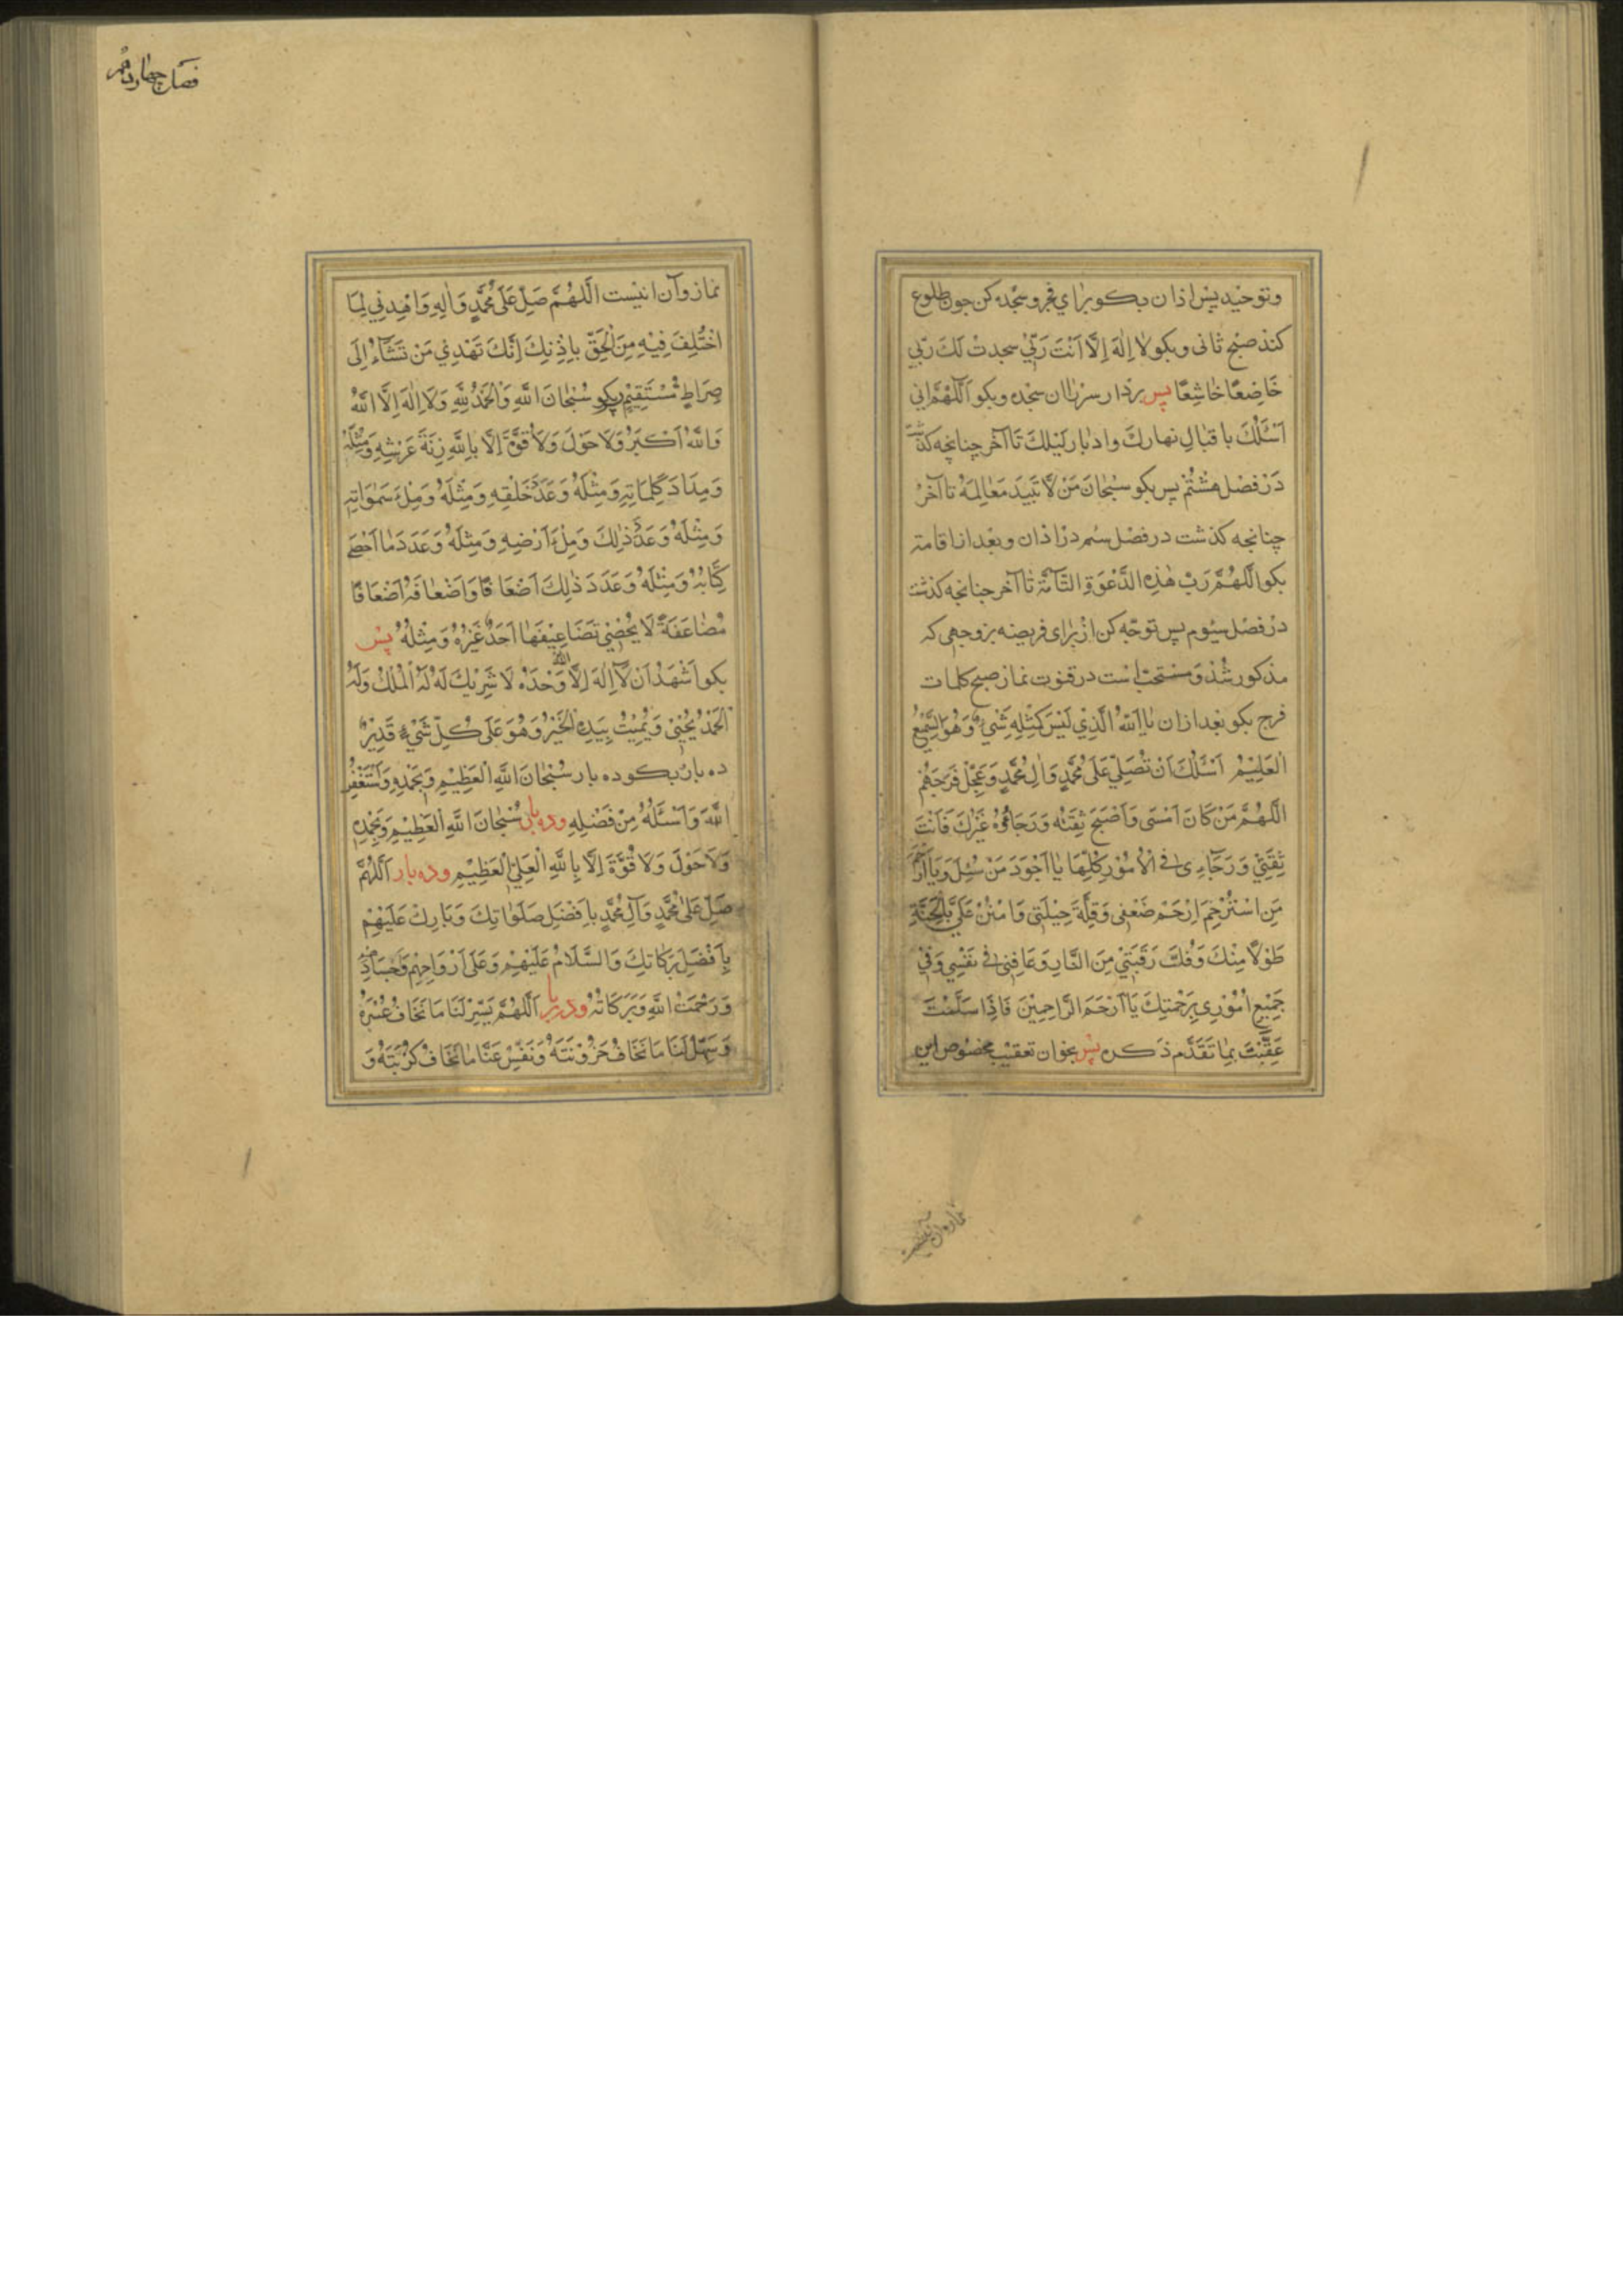 وتوحید پس اذان بکو برای فجر و سجده کن جون طلوع
کند صبح ثانی و بکو لا اِلٰهَ اِلَّا اَنْتَ رَبّی سجدتْ لَكَ رَبّی
خَاضِعًا خَاشِعًا پس بردار سر را ان سجده و بکو اَللّٰهُمَّ اِنی
اَسْئَلُكَ باقبالِ نهارك وادبار لَیْلِكَ تا آخر چنانچه کذشت
دَرْ فصْل هشتُمْ پس بکو سُبْحانَ مَنْ لا تَبیدَ مَعٰالِمَهُ تا آخرُ
چنانچه کذشت در فصْل سُم درْ اذان وبعْد از اقامة
بکو اَللّٰهُمَّ رَبْ هٰذِهِ الدَّعْوَةِ التَّآمَّةِ تٰا آخر چنانچه کذشت
درْ فصْل سیُوم پس توجّه کن ازْ بَرٰای فریضه بر وجهی که
مذکور شُدْ وَ مستحبْ است در قنوت نماز صبح کلمات
فرج بکو بعْد از ان یٰا اَللّٰهُ الَّذِیْ لَیْسَ کَمِثْلِهِ شَیْءٌ وَهُوَ السَّمِیْعُ
الْعَلِیْمُ اَسْئَلُكَ اَنْ تُصَلِّیَ عَلیٰ مُحَمَّدٍ وَاٰلِ مُحَمَّدٍ وَعَجِّلْ فَرَجَهُمْ
اَللّٰهُمَّ مَنْ کَانَ اَمْسَی وَاَصْبَحَ ثِقَتُه وَرَجَاؤُهُ غَیْرُكَ فَاَنْتَ
ثِقَتِیْ وَرَجَآءِی فی الْاُمُوْرِ کُلِّهَا یٰا اَجْوَدَ مَنْ سُئِلَ وَیٰا اَرْحَمَ
مَنِ اسْتُرْحِمَ اِرْحَمْ ضَعْفِی وَقِلَّةَ حِیْلَتِی وَامْنُنْ عَلَیَّ بِالْجَنَّةِ
طَوْلًا مِنْكَ وَفُكَّ رَقَبَتِیْ مِنَ النَّارِ وَعَافِنِی فی نَفْسِی وَفِیْ
جَمِیْعِ اُمُوْرِی بِرَحْمَتِكَ یَا اَرْحَمَ الرَّاحِمِیْنَ فَاِذَا سَلَّمْتَ
عَقَّبْتَ بِمٰا تَقَدَّم ذکره پس بخوان تعقیب مخصوص این
نماز وآن انیست
فصل چهاردهم
نماز وآن انیست اَللّٰهُمَّ صَلِّ عَلیٰ مُحَمَّدٍ وَاٰلِهِ وَاهْدِنِی لِمَا
اخْتُلِفَ فِیْهِ مِنَ الْحَقِّ بِاِذْنِكَ اِنَّكَ تَهْدِیْ مَنْ تَشَآءُ اِلَی
صِرَاطٍ مُسْتَقِیْمٍ بکو سُبْحٰانَ اللّٰهِ وَالْحَمْدُ لِلّٰهِ وَلَا اِلٰهَ اِلَّا اللّٰهُ
وَاللّٰهُ اَکْبَرُ وَلَا حَوْلَ وَلَا قُوَّةَ اِلَّا بِاللّٰهِ زِنَةَ عَرْشِهِ وَمِثْلَهُ
وَمِدَادَ کَلِمَاتِهِ وَمِثْلَهُ وَعَدَدَ خَلْقِهِ وَمِثْلَهُ وَمِلْءَ سَمٰوَاتِهِ
وَمِثْلَهُ وَعَدَدَ ذٰلِكَ وَمِلْءَ اَرْضِهِ وَمِثْلَهُ وَعَدَدَ مٰا اَحْصَی
کِتَابُهُ وَمِثْلَهُ وَعَدَدَ ذٰلِكَ اَضْعَافًا وَاَضْعٰافَهُ اَضْعَافًا
مُضٰاعَفَةً لَا یُحْصِیْ تَضَاعِیْفَهَا اَحَدٌ غَیْرُهُ وَمِثْلَهُ پس
بکو اَشْهَدُ اَنْ لَا اِلٰهَ اِلَّا اللّٰهُ وَحْدَهُ لَا شَرِیْكَ لَهُ لَهُ الْمُلْكُ وَلَهُ
الْحَمْدُ یُحْیِیْ وَیُمِیْتُ بِیَدِهِ الْخَیْرُ وَهُوَ عَلَی کُلِّ شَیْءٍ قَدِیْرٌ
ده بار بکو ده بار سُبْحَانَ اللّٰهِ الْعَظِیْمِ وَبِحَمْدِهِ وَاَسْتَغْفِرُ
اللّٰهَ وَاَسْئَلُهُ مِنْ فَضْلِهِ وده بار سُبْحَانَ اللّٰهِ الْعَظِیْمِ وَبِحَمْدِهِ
وَلَا حَوْلَ وَلَا قُوَّةَ اِلَّا بِاللّٰهِ الْعَلِیِّ الْعَظِیْمِ وده بار اَللّٰهُمَّ
صَلِّ عَلیٰ مُحَمَّدٍ وَآلِ مُحَمَّدٍ بِاَفْضَلِ صَلَوٰاتِكَ وَبَارِكْ عَلَیْهِمْ
بِاَفْضَلِ بَرَکَاتِكَ وَالسَّلَامُ عَلَیْهِمْ وَعَلَی اَرْوَاحِهِمْ وَاَجْسَادِهِمْ
وَرَحْمَتُ اللّٰهِ وَبَرَکَاتُهُ اَللّٰهُمَّ یَسِّرْ لَنَا مَا نَخَافُ عُسْرَهُ
وَسَهِّلْ لَنَا مَا نَخَافُ حَزُوْنَتَهُ وَنَفِّسْ عَنَّا مٰا نَخَافُ کُرْبَتَهُ وَ